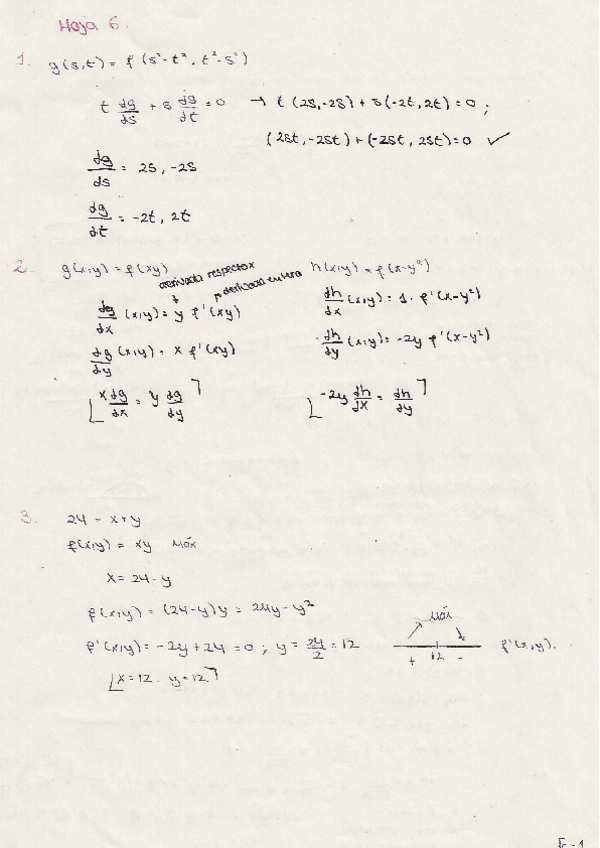 Hoja 6.
1. g(s,t) = f(s²-t², t²-s²)
t dg/ds + s dg/dt = 0 → t(2s,-2s) + s(-2t,2t) = 0;
(2st,-2st) + (-2st, 2st) = 0 ✓
dg/ds = 2s, -2s
dg/dt = -2t, 2t
2. g(x,y) = f(xy) h(x,y) = f(x-y²)
derivada respecto x derivada entera
dg/dx (x,y) = y f'(xy) dh/dx (x,y) = 1. f'(x-y²)
dg/dy (x,y) = x f'(xy) dh/dy (x,y) = -2y f'(x-y²)
x dg/dx = y dg/dy -2y dh/dx = dh/dy
3. 24 = x+y
f(x,y) = xy Máx
x = 24-y
f(x,y) = (24-y)y = 24y-y²
Máx
f'(x,y) = -2y+24 = 0; y = 24/2 = 12 + 12 - f'(x,y).
x=12 y=12